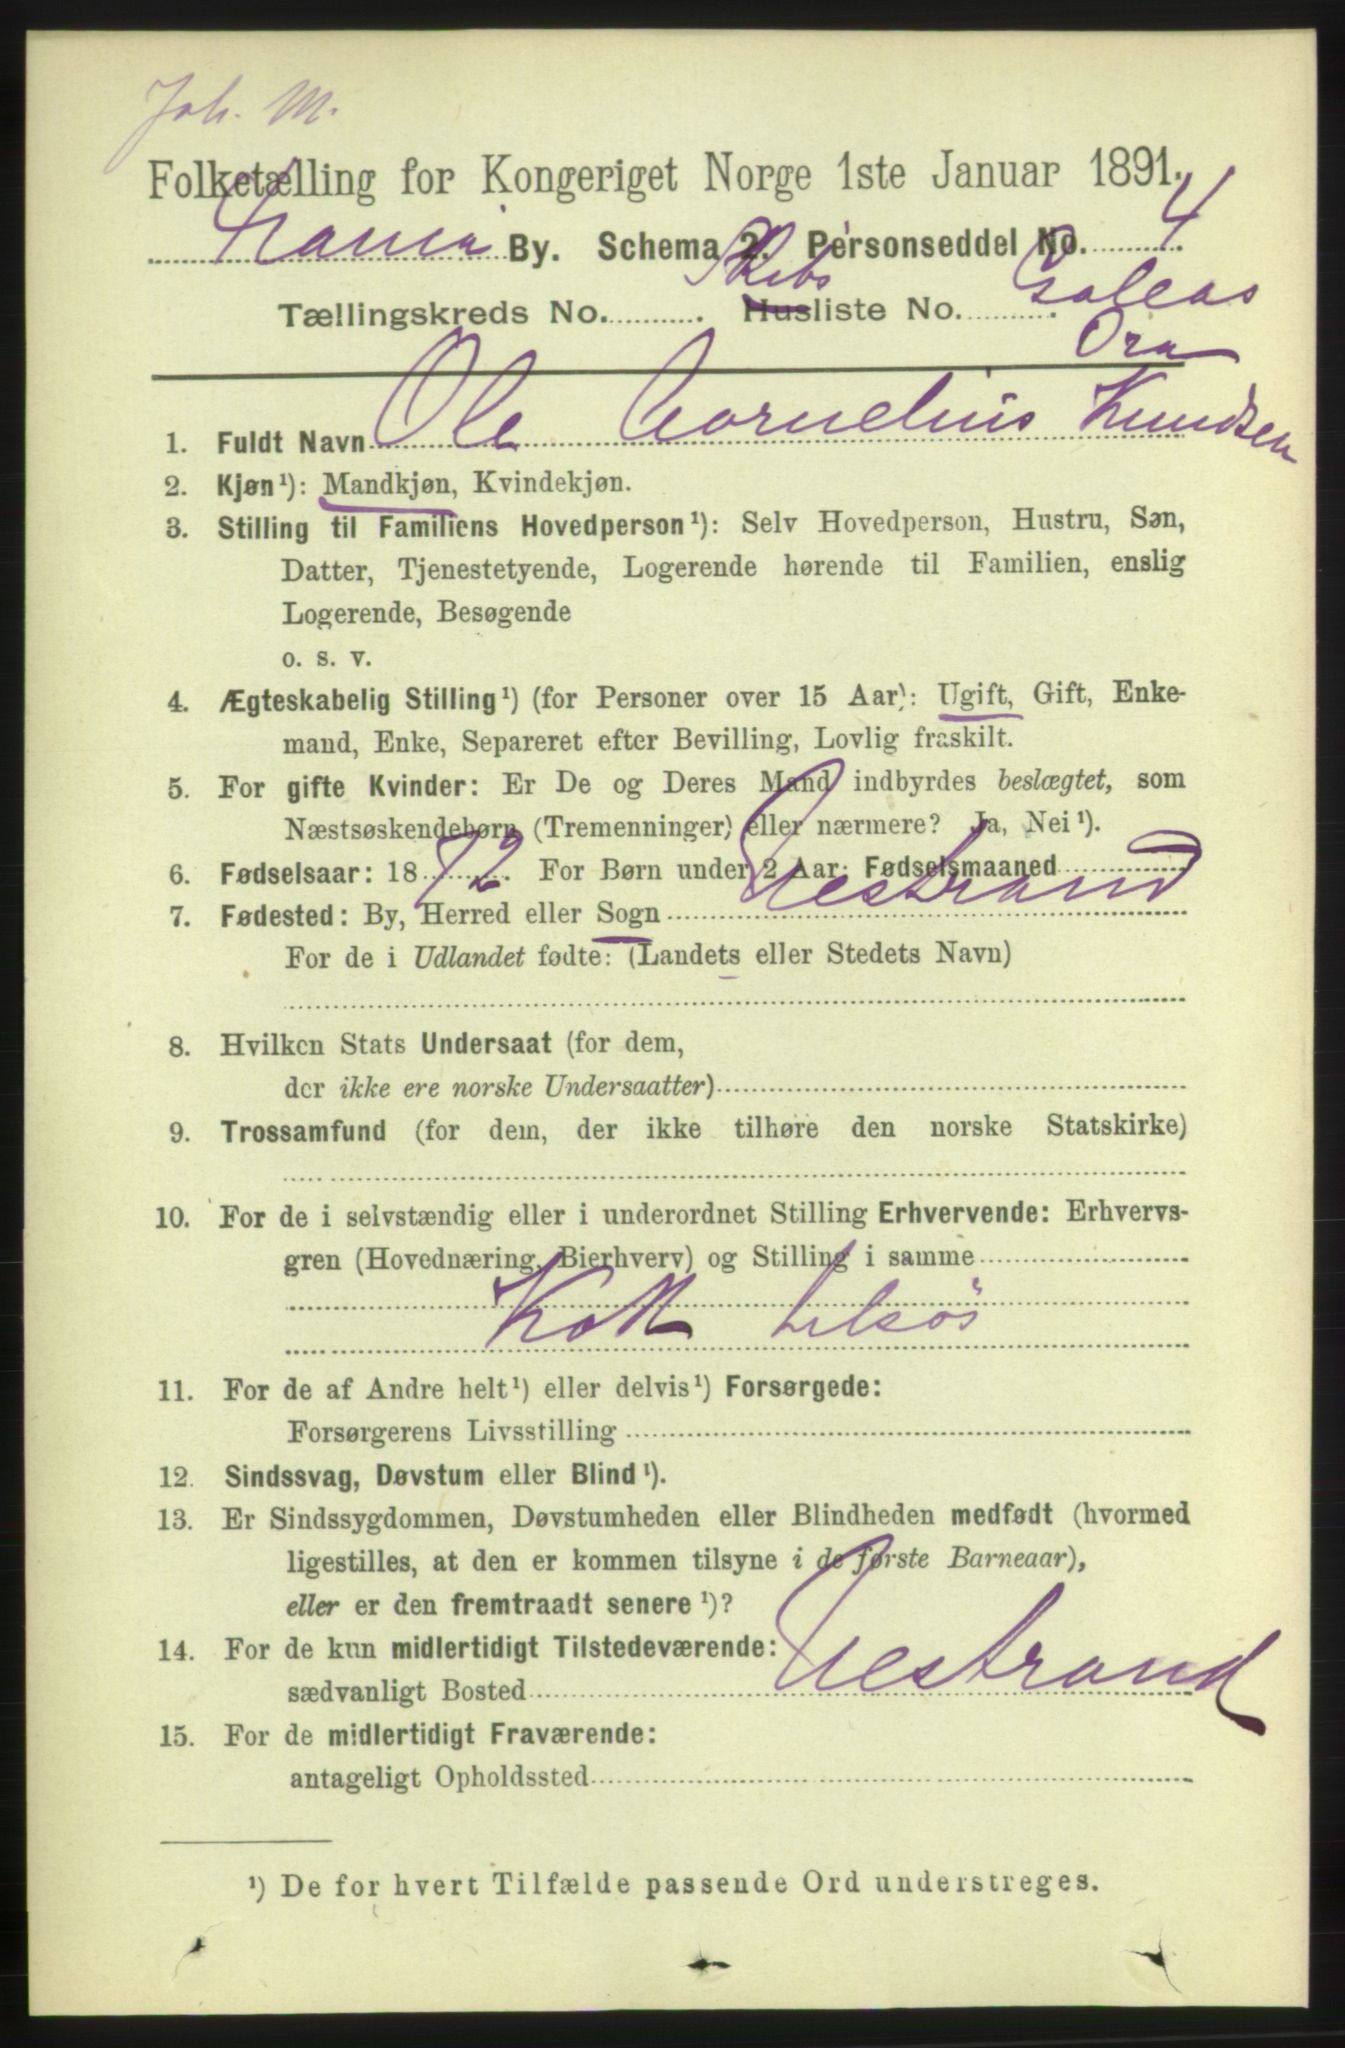 Joh. M.
Folketælling for Kongeriget Norge 1ste Januar 1891.
By. Schema 2. Personseddel No. 4
Tællingskreds No. Skibs Husliste No. Galeas
Ora
1. Fuldt Navn Ole Cornelius Knudsen
2. Kjøn¹): Mandkjøn, Kvindekjøn.
3. Stilling til Familiens Hovedperson¹): Selv Hovedperson, Hustru, Søn,
Datter, Tjenestetyende, Logerende hørende til Familien, enslig
Logerende, Besøgende
o. s. v.
4. Ægteskabelig Stilling¹) (for Personer over 15 Aar): Ugift, Gift, Enke-
mand, Enke, Separeret efter Bevilling, Lovlig fraskilt.
5. For gifte Kvinder: Er De og Deres Mand indbyrdes beslægtet, som
Næstsøskendebørn (Tremenninger) eller nærmere? Ja, Nei¹).
6. Fødselsaar: 1872. For Børn under 2 Aar: Fødselsmaaned
7. Fødested: By, Herred eller Sogn Nestrand
For de i Udlandet fødte: (Landets eller Stedets Navn)
8. Hvilken Stats Undersaat (for dem,
der ikke ere norske Undersaatter)
9. Trossamfund (for dem, der ikke tilhøre den norske Statskirke)
10. For de i selvstændig eller i underordnet Stilling Erhvervende: Erhvervs-
gren (Hovednæring, Bierhverv) og Stilling i samme
Kok tilsøs
11. For de af Andre helt¹) eller delvis¹) Forsørgede:
Forsørgerens Livsstilling
12. Sindssvag, Døvstum eller Blind¹).
13. Er Sindssygdommen, Døvstumheden eller Blindheden medfødt (hvormed
ligestilles, at den er kommen tilsyne i de første Barneaar),
eller er den fremtraadt senere¹)?
14. For de kun midlertidigt Tilstedeværende:
sædvanligt Bosted Nestrand
15. For de midlertidigt Fraværende:
antageligt Opholdssted
¹) De for hvert Tilfælde passende Ord understreges.